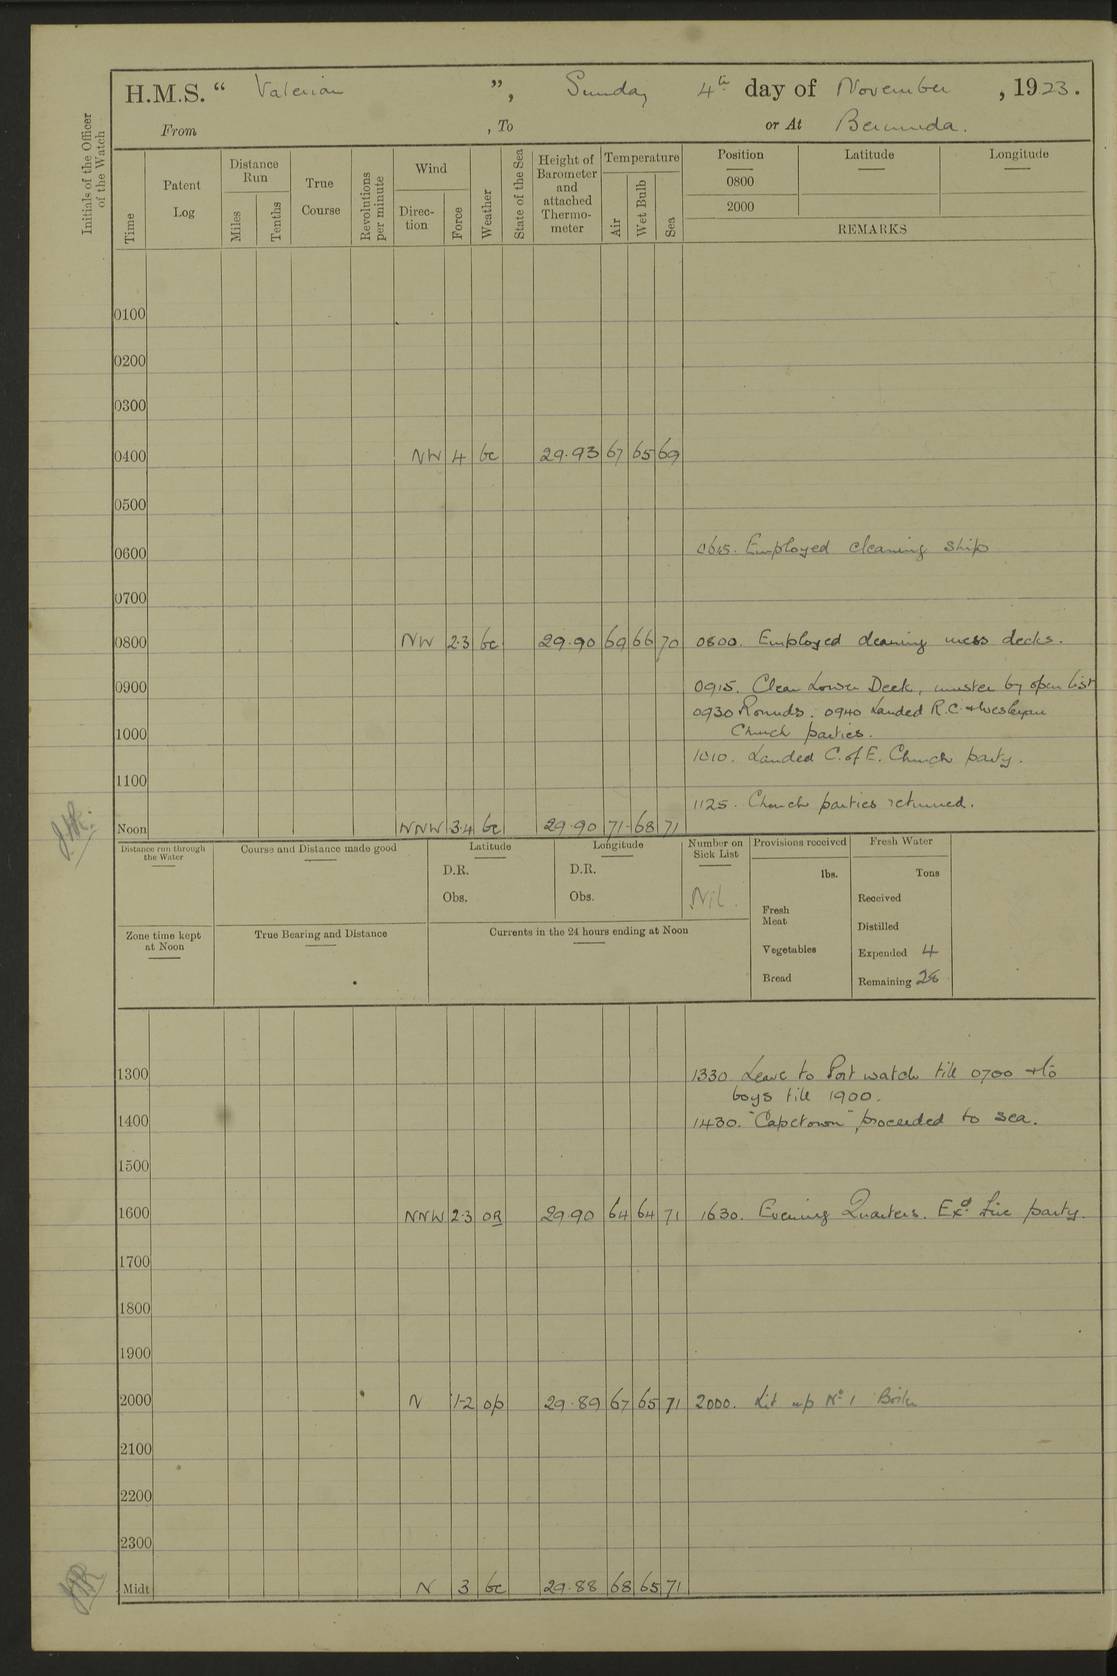 H.M.S. “ Valerian ”, Sunday 4th day of November, 1923.
From , To or At Bermuda.
Initials of the Officer of the Watch
Time Patent Log Distance Run Miles Tenths True Course Revolutions per minute Wind Direc-tion Force Weather State of the Sea Height of Barometer and attached Thermo-meter Temperature Air Wet Bulb Sea Position Latitude Longitude
0800
2000
REMARKS
0100
0200
0300
0400 NW 4 bc 29.93 67 65 69
0500
0600 0615. Employed cleaning ship
0700
0800 NW 2.3 bc 29.90 69 66 70 0800. Employed cleaning mess decks.
0900 0915. Clear Lower Deck, muster by open list
0930 Rounds. 0940 Landed R.C. + Wesleyan
1000 Church parties.
1010. Landed C. of E. Church party.
1100
1125. Church parties returned.
Noon NNW 3.4 bc 29.90 71 68 71
Distance run through the Water Course and Distance made good Latitude Longitude Number on Sick List Provisions received Fresh Water
D.R. D.R. lbs. Tons
Obs. Obs. Nil. Received
Fresh Meat
Zone time kept at Noon True Bearing and Distance Currents in the 24 hours ending at Noon Distilled
Vegetables Expended 4
Bread Remaining 28
1300 1330 Leave to Port watch till 0700 + to
boys till 1900.
1400 1430. "Capetown" proceeded to sea.
1500
1600 NNW 2.3 OR 29.90 64 64 71 1630. Evening Quarters. Exd. Fire party.
1700
1800
1900
2000 N 1-2 op 29.89 67 65 71 2000. Lit up No 1 Boiler
2100
2200
2300
Midt N 3 bc 29.88 68 65 71